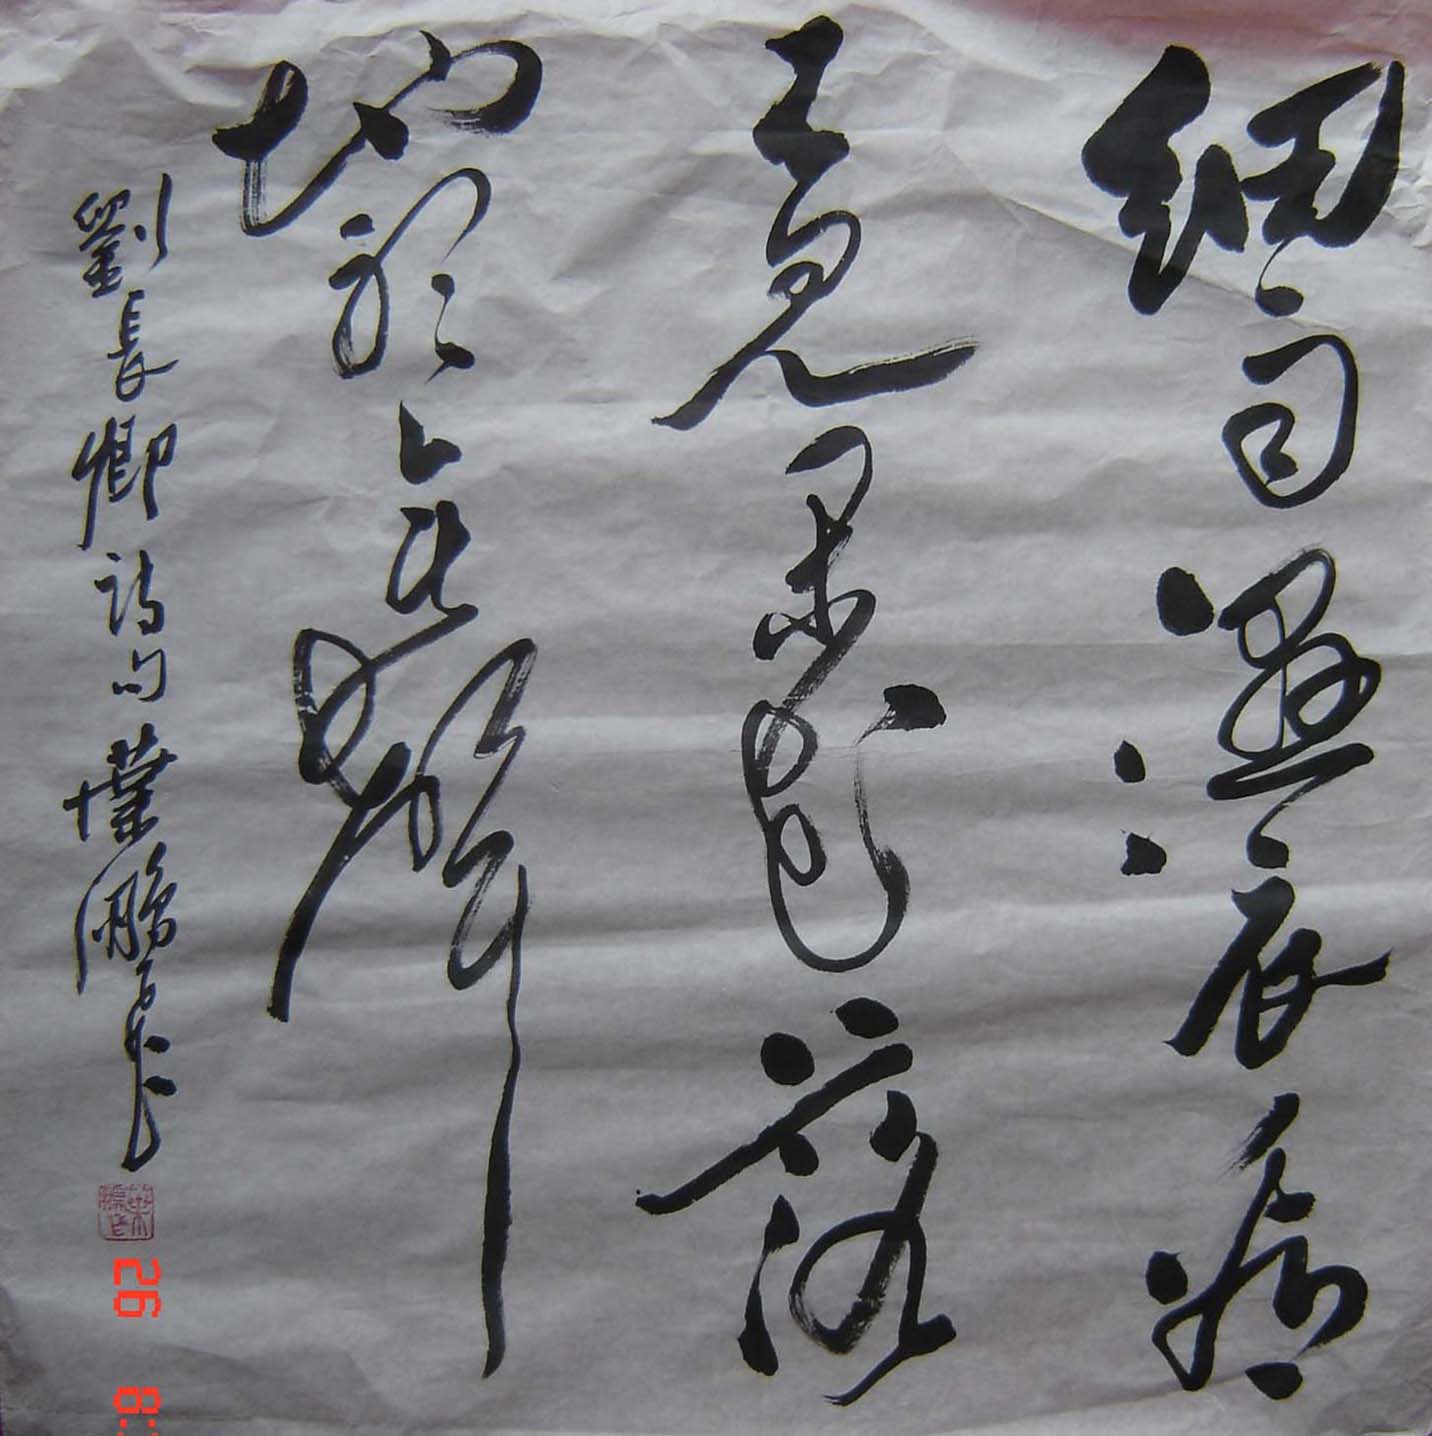 細雨濕衣看
不見閑花落
地聽無聲
劉長卿詩句葉鵬
26 8: